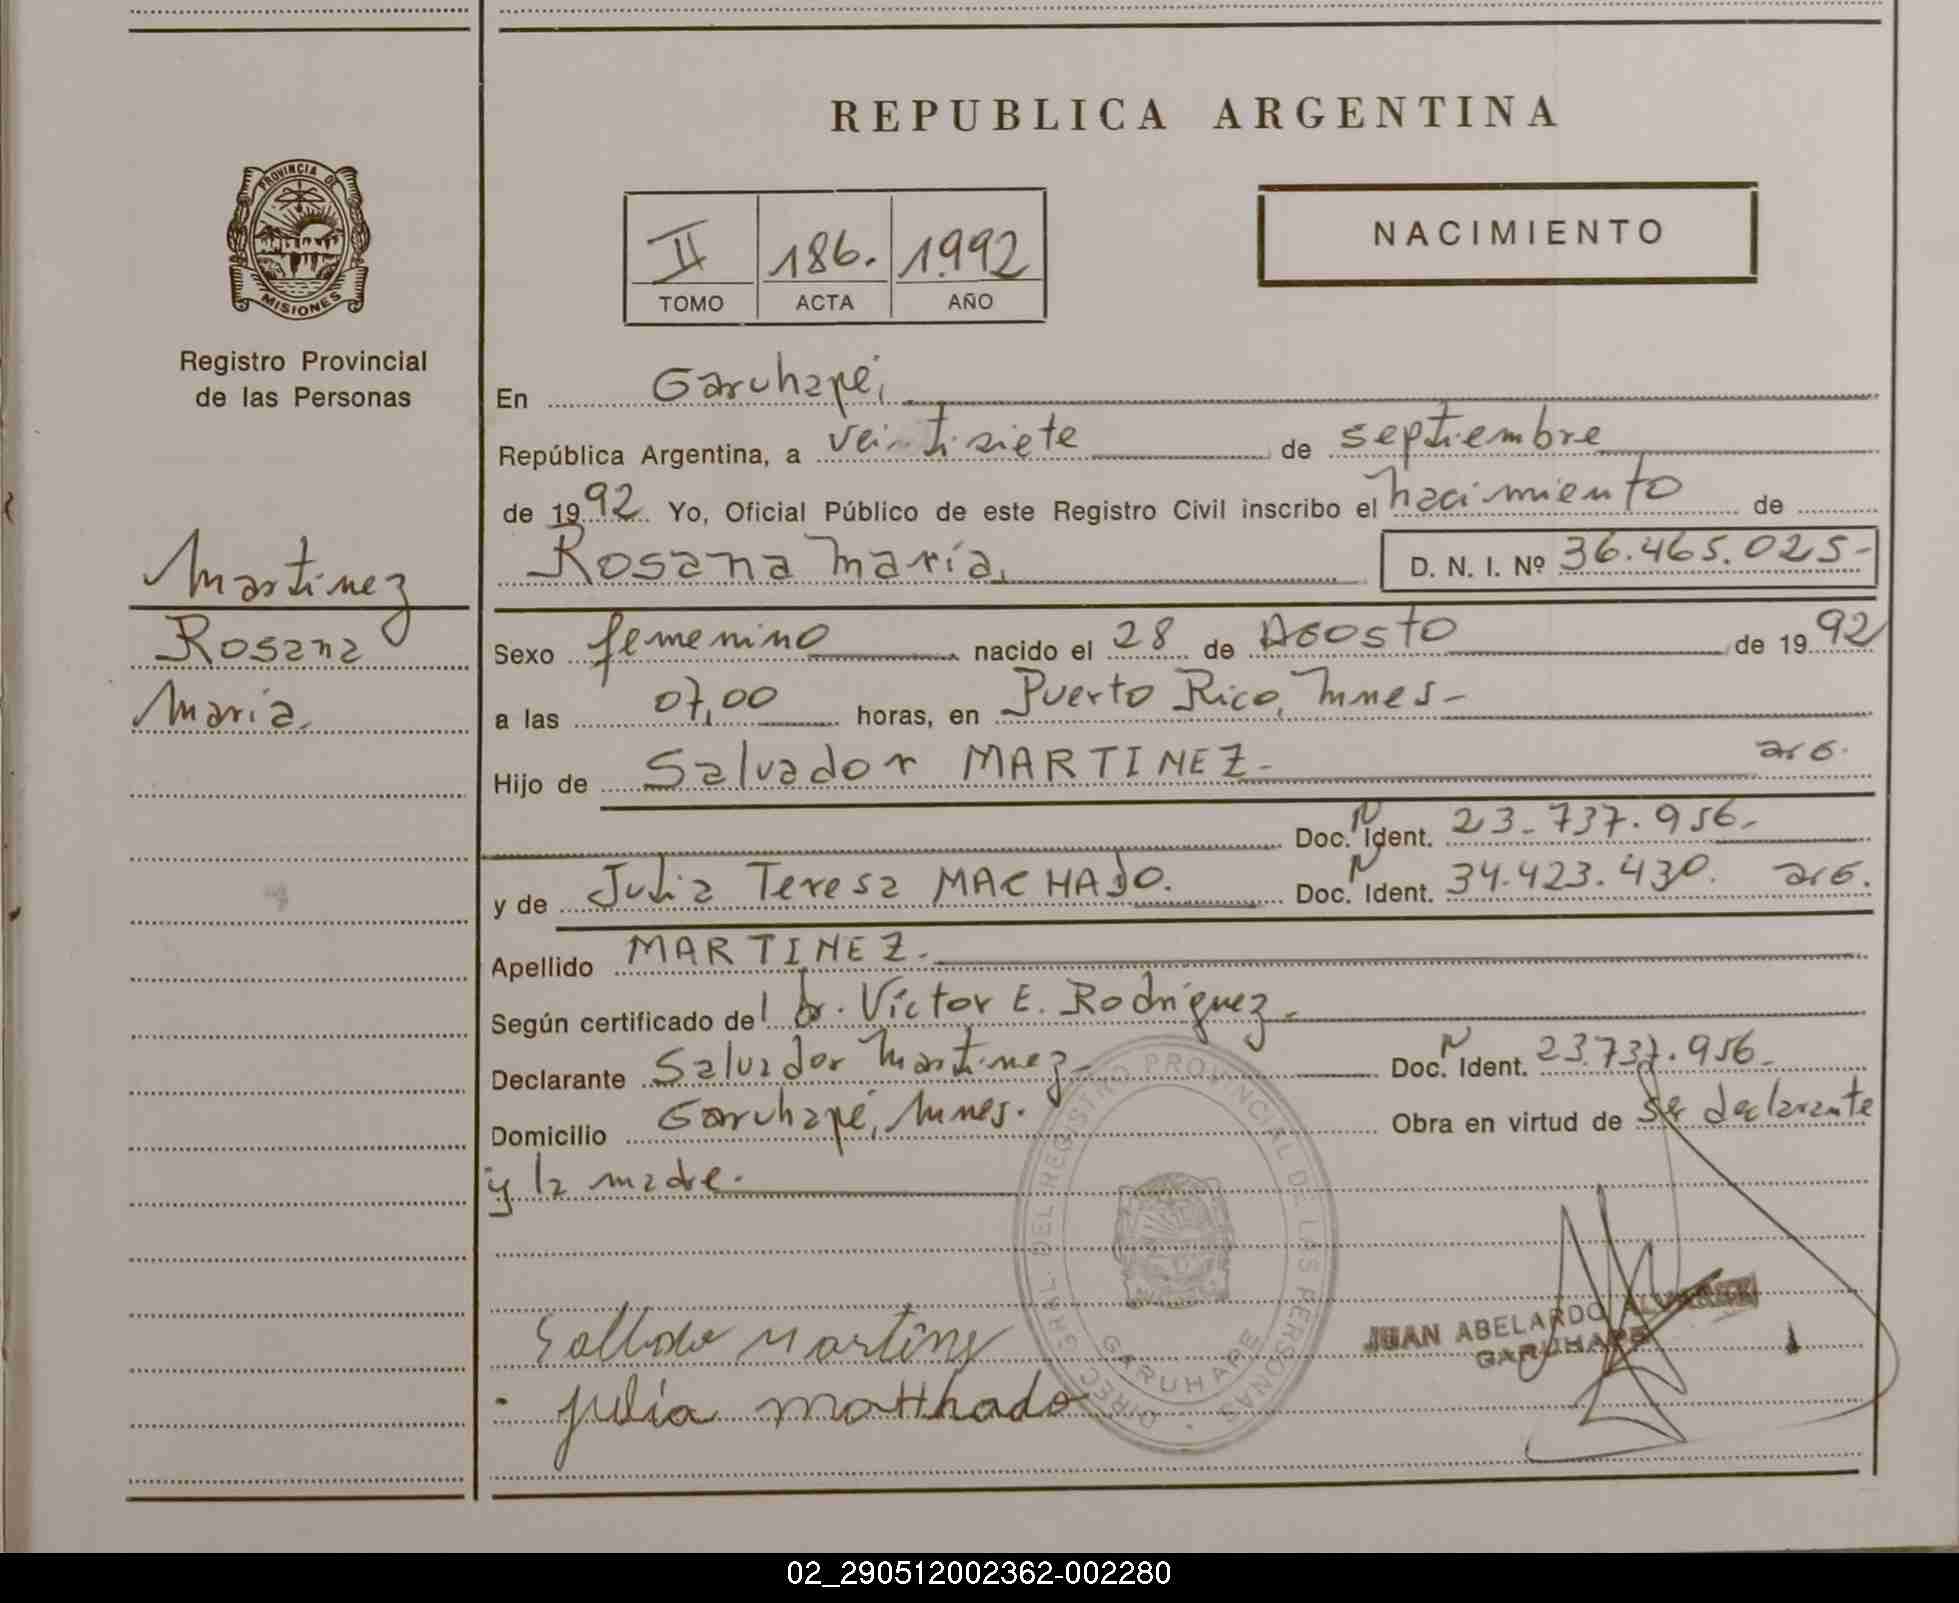 REPUBLICA ARGENTINA
PROVINCIA DE
MISIONES
Registro Provincial
de las Personas
NACIMIENTO
II 186. 1.992
TOMO ACTA AÑO
En Garuhapé,
República Argentina, a veintisiete de septiembre
de 1992 Yo, Oficial Público de este Registro Civil inscribo el nacimiento de
Rosana María, D. N. I. Nº 36.465.025-
Martinez
Rosana
María.
Sexo femenino nacido el 28 de Agosto de 1992
a las 07,00 horas, en Puerto Rico, Mnes-
Hijo de Salvador MARTINEZ- arg.
Doc. N Ident. 23.737.956-
y de Julia Teresa MACHADO. Doc. N Ident. 34.423.430. arg.
Apellido MARTINEZ.
Según certificado del Dr. Víctor E. Rodríguez-
Declarante Salvador Martinez- Doc. N Ident. 23.737.956-
Domicilio Garuhapé, Mnes. Obra en virtud de ser declarante
y la madre.
DIREC. GRAL. DEL REGISTRO PROVINCIAL DE LAS PERSONAS
GARUHAPE
JUAN ABELARDO
GARUHAPE
julia matthado
02_290512002362-002280